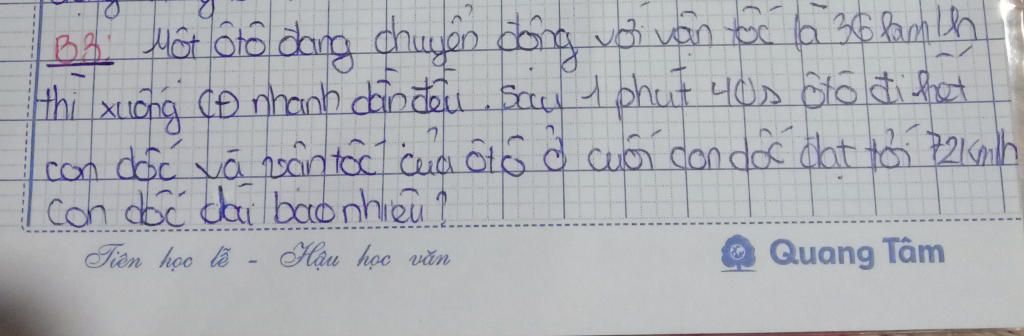 B3: Một ôtô đang chuyển động với vận tốc là 36 km/h
thì xuống CĐ nhanh dần đều. Sau 1 phút 40s ôtô đi hết
con dốc và vận tốc của ôtô ở cuối con dốc đạt tới 72km/h
Con dốc dài bao nhiêu?
Tiên học lễ - Hậu học văn
Quang Tâm